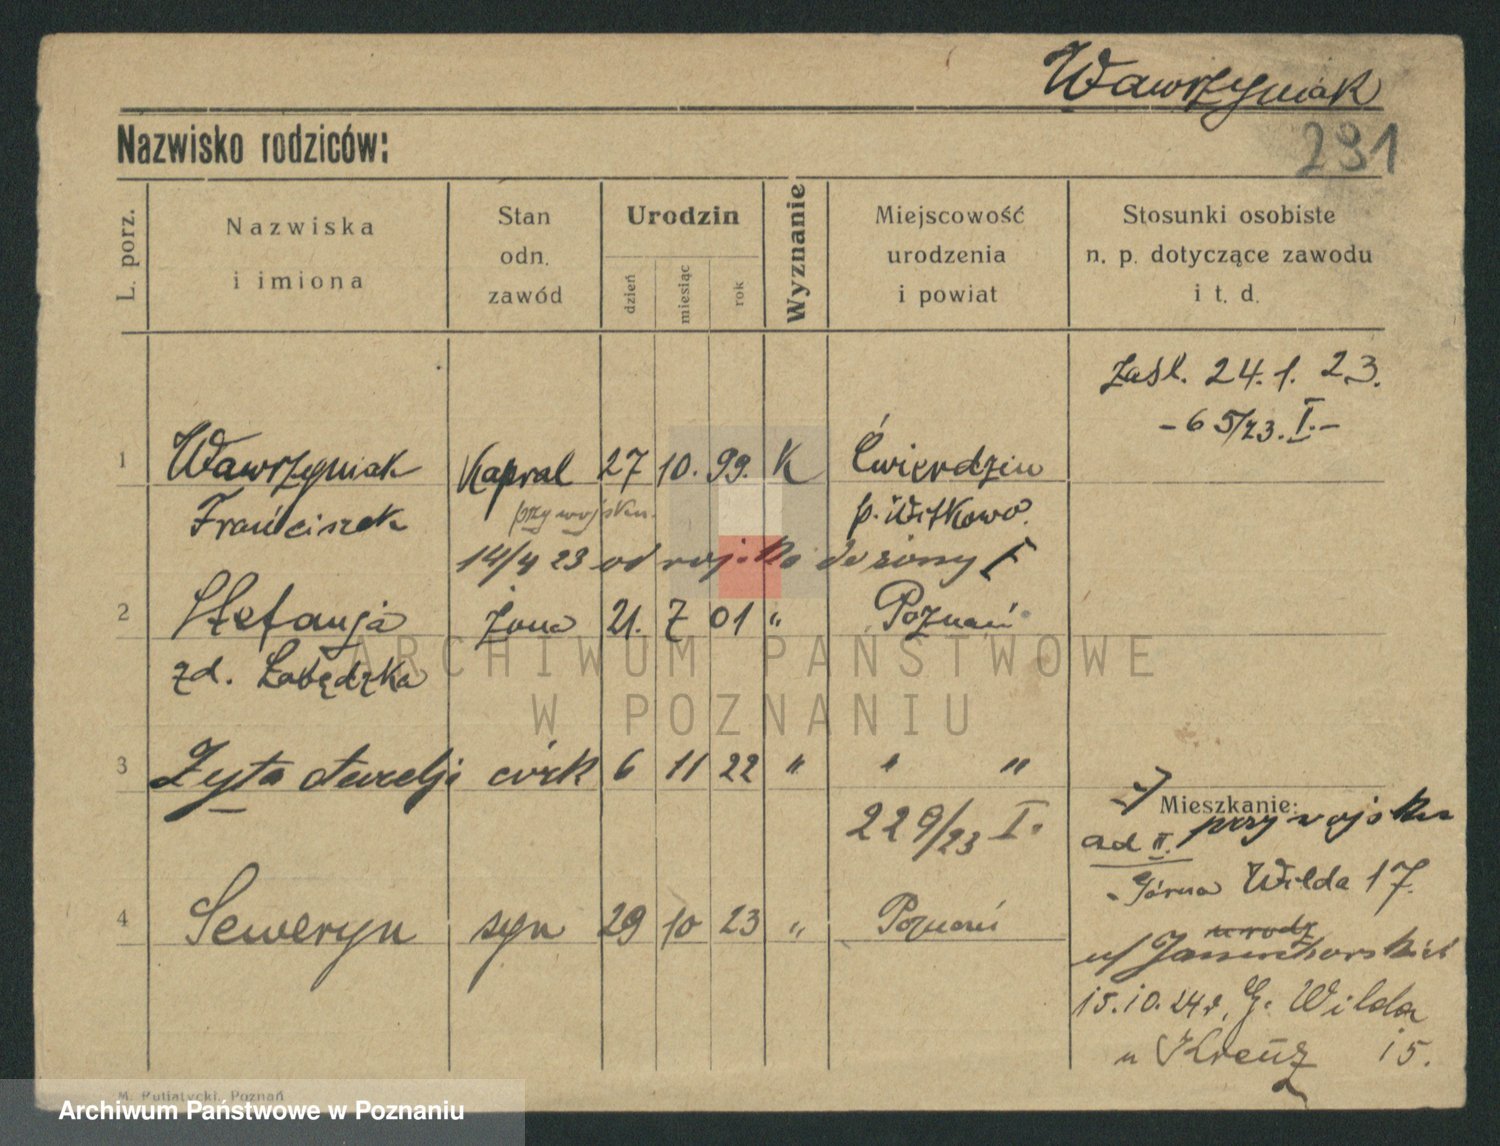 Wawrzyniak
Nazwisko rodziców:
231
L. porz.
Nazwiska
i imiona
Stan
odn.
zawód
Urodzin
dzień
miesiąc
rok
Wyznanie
Miejscowość
urodzenia
i powiat
Stosunki osobiste
n. p. dotyczące zawodu
i t. d.
Zaśl. 24. 1. 23.
- 65/23. I. -
1 Wawrzyniak Kapral 27 10. 99. K Ćwierdzin
Franciszek przy wojsku. p. Witkowo.
14/4 23 od wojska do żony
2 Stefanja żona 21. 7 01 " Poznań
zd. Łabędzka
ARCHIWUM PAŃSTWOWE
W POZNANIU
3 Zyta córk 6 11 22 " " "
Mieszkanie:
przy wojsku
229/23 I.
ad II.
Górna Wilda 17.
4 Seweryn syn 29 10 23 " Poznań
urodz
15.10.24 G. Wilda
15.
M. Putiatycki, Poznań
Archiwum Państwowe w Poznaniu